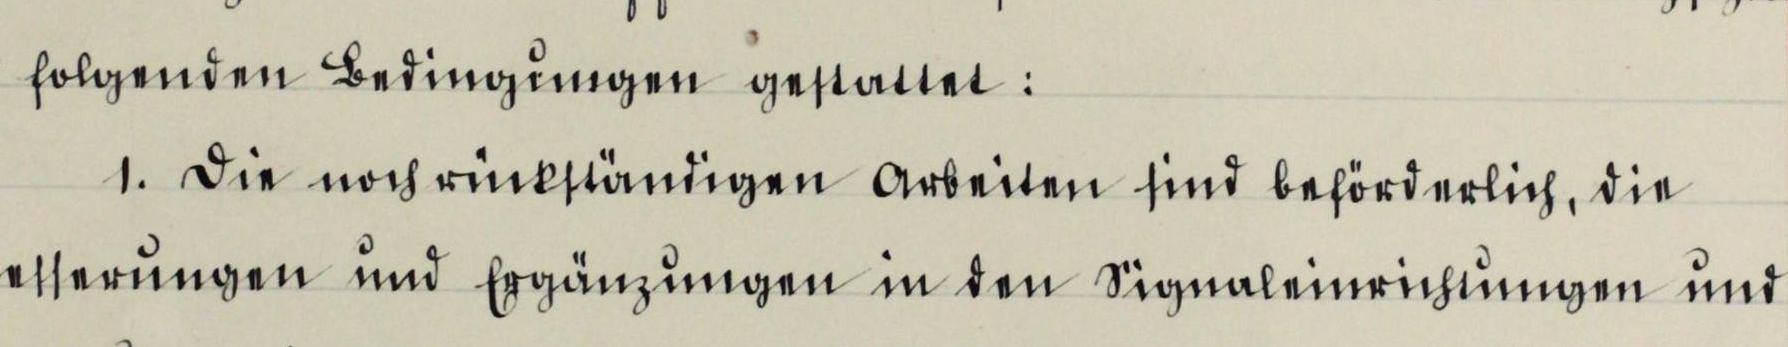 folgenden Bedingungen gestattet:
1. Die noch rückständigen Arbeiten sind beförderlich, die
esserungen und Ergänzungen in den Signaleinrichtungen und